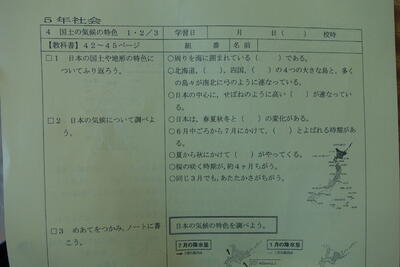 5年社会
4 国土の気候の特色 1・2／3 学習日 月 日（ ）校時
【教科書】42〜45ページ 組 番 名前
□1 日本の国土や地形の特色に
ついてふり返ろう。
○周りを海に囲まれている（ ）である。
○北海道、（ ）、四国、（ ）の4つの大きな島と、多く
の島々が南北に弓のように連なっている。
○日本の中心に、せぼねのように高い（ ）が連なってい
る。
□2 日本の気候について調べよ
う。
○日本は、春夏秋冬と（ ）の変化がある。
○6月中ごろから7月にかけて、（ ）とよばれる時期があ
る。
○夏から秋にかけて（ ）がやってくる。
○桜の咲く時期が、約4ヶ月ちがう。
○同じ3月でも、あたたかさがちがう。
□3 めあてをつかみ、ノートに書
こう。
日本の気候の特色を調べよう。
7月の降水量
1月の降水量